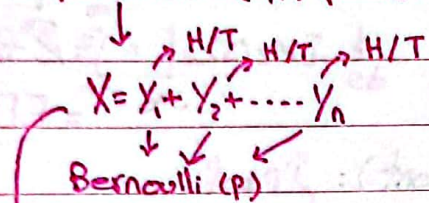 H/T H/T H/T
X = Y₁ + Y₂ + ..... Yₙ
Bernoulli (p)